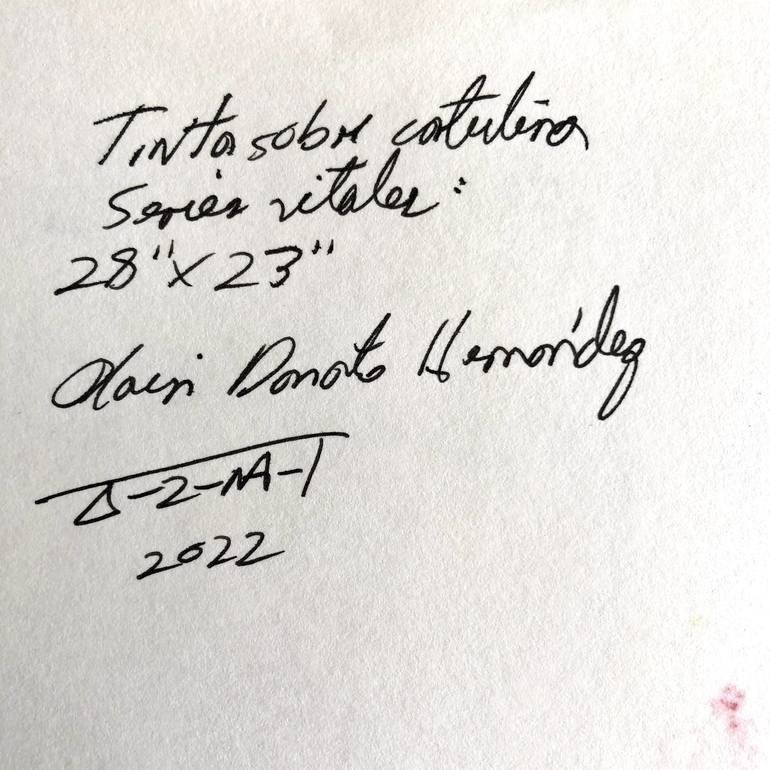 Tinta sobre cartulina
Series vitales:
28"x23"
Alain Donato Hernández
Δ-2-NA-1
2022